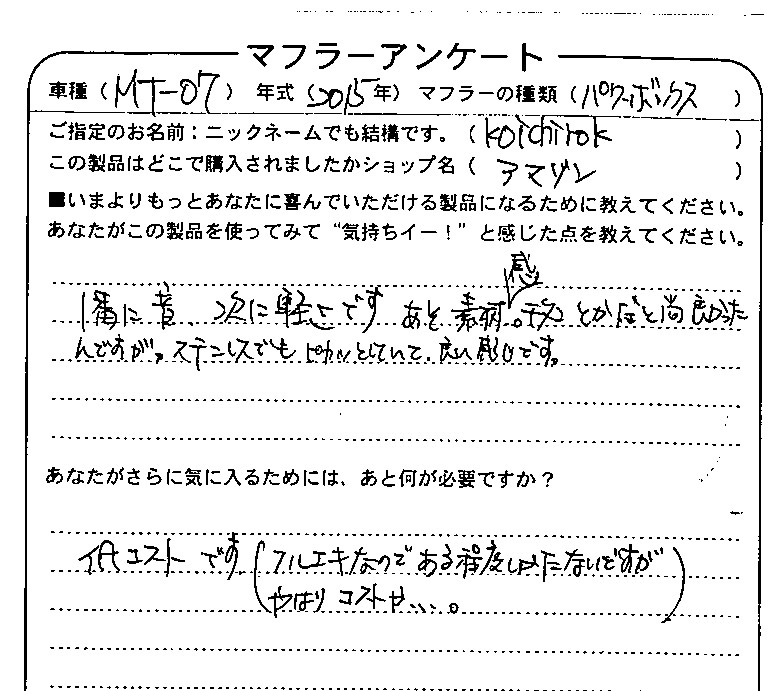 マフラーアンケート
車種（MT-07） 年式（2015年） マフラーの種類（パワーボックス）
ご指定のお名前：ニックネームでも結構です。（koichirok）
この製品はどこで購入されましたかショップ名（アマゾン）
■いまよりもっとあなたに喜んでいただける製品になるために教えてください。
あなたがこの製品を使ってみて“気持ちイー！”と感じた点を教えてください。
1番に音、次に軽さです あと素材感。チタンとかだと尚良かった
んですが。ステンレスでもピカッとしていて、良い
です。
あなたがさらに気に入るためには、あと何が必要ですか？
低コストです（フルエキなのである程度しかたないですが
やはりコストや...。）